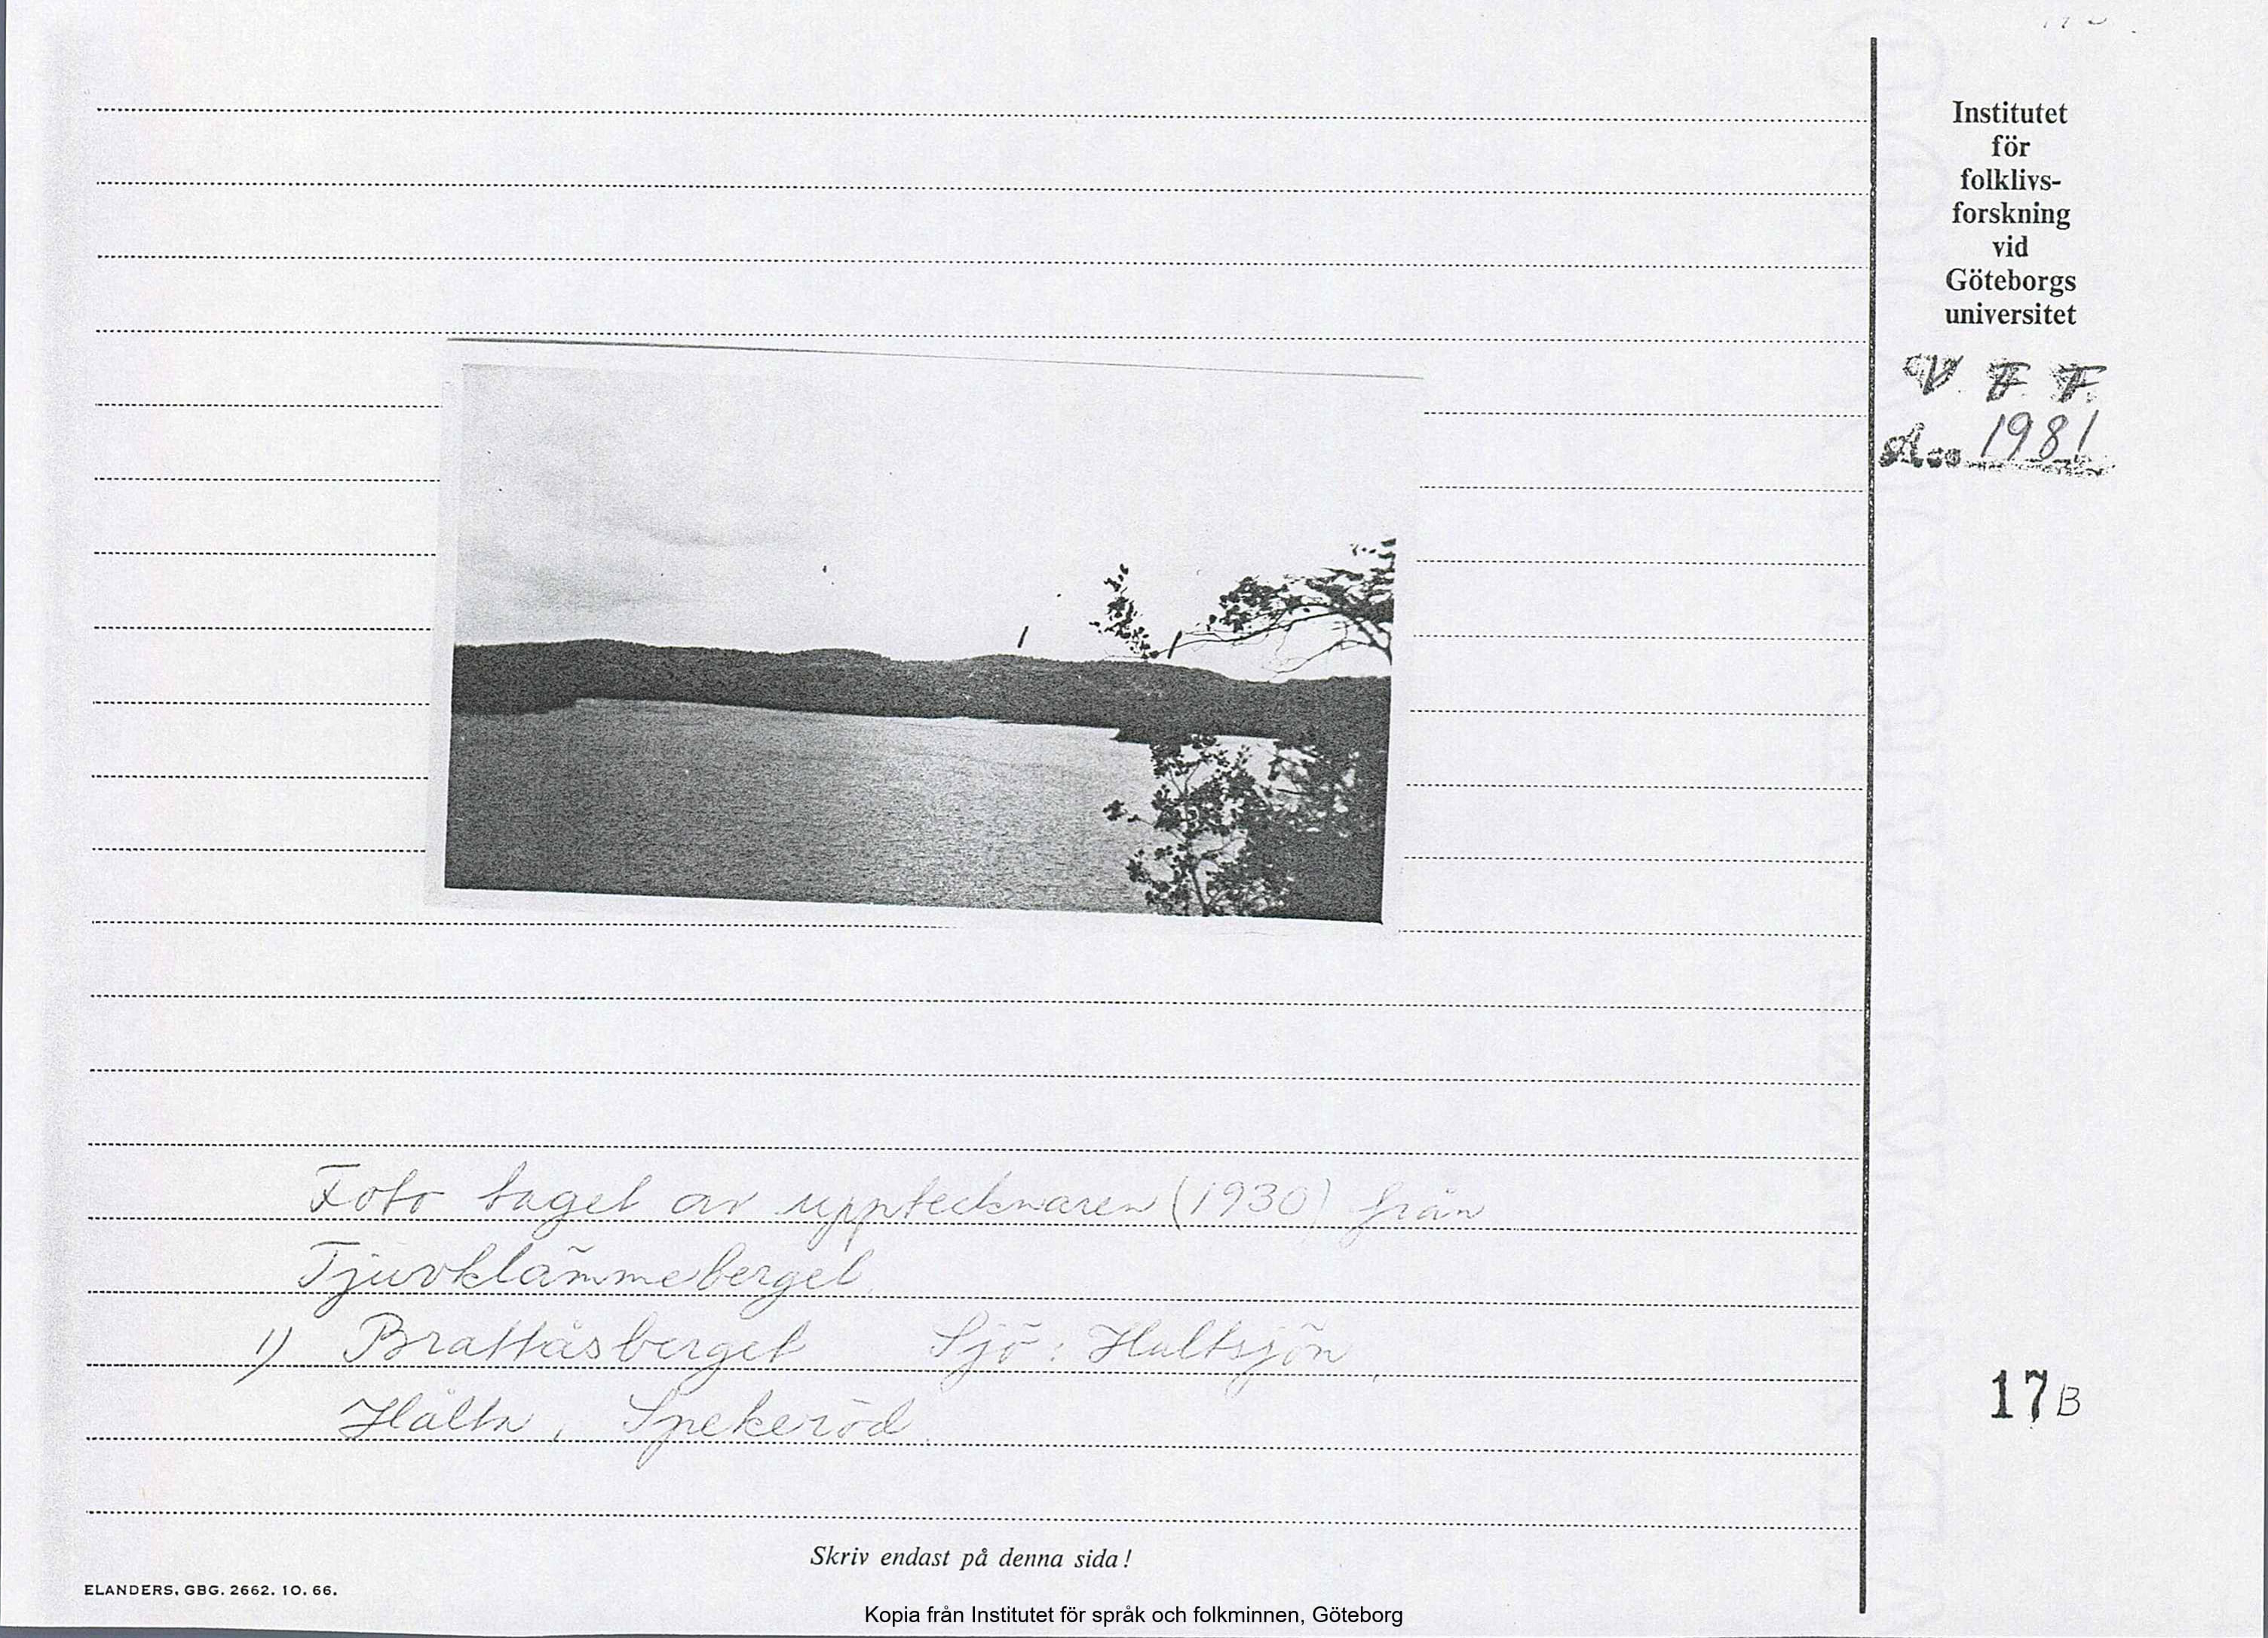 Institutet
för
folklivs-
forskning
vid
Göteborgs
universitet
V. F. F.
1981
Foto taget av upptecknaren (1930) från
Tjuvklämmeberget
1) Brattåsberget Sjö: Hultsjön
Hålta, Spekeröd
17B
Skriv endast på denna sida!
ELANDERS, GBG. 2662. 10. 66.
Kopia från Institutet för språk och folkminnen, Göteborg